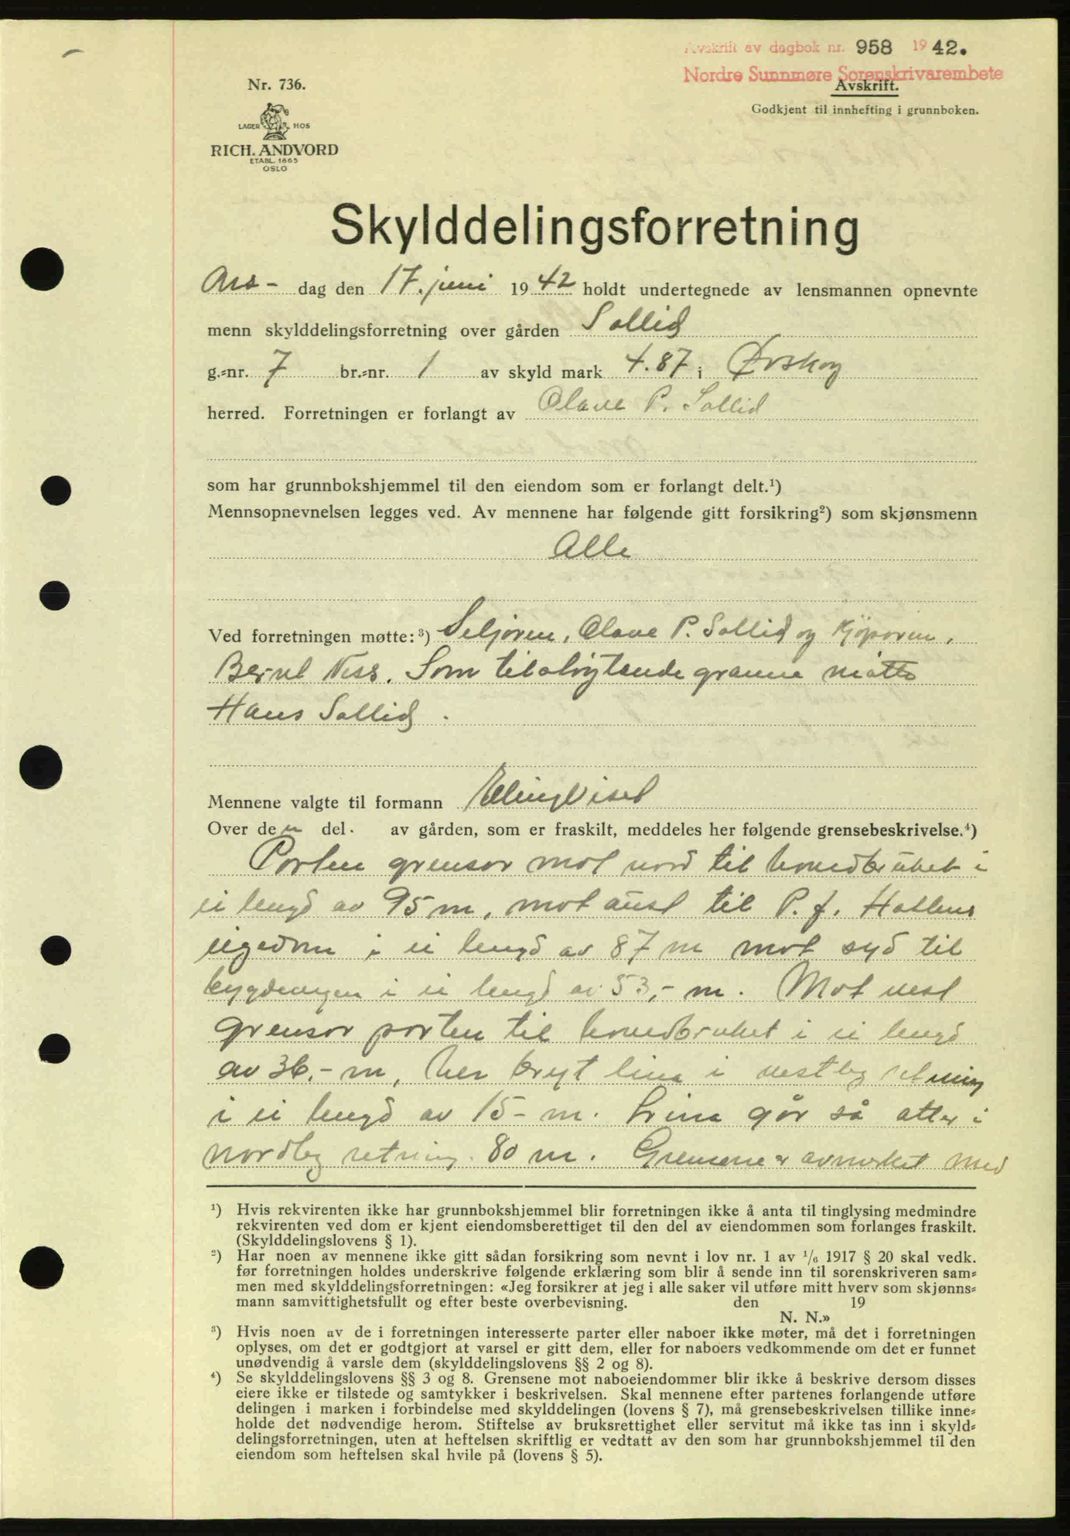 Avskrift av dagbok nr. 958 1942.
Nordre Sunnmøre Sorenskrivarembete
Nr. 736.
Avskrift.
Godkjent til innhefting i grunnboken.
LAGER HOS
RICH. ANDVORD
ETABL. 1865
OSLO
Skylddelingsforretning
Ons- dag den 17. juni 1942 holdt undertegnede av lensmannen opnevnte
menn skylddelingsforretning over gården Sollid
g.=nr. 7 br.=nr. 1 av skyld mark 4.87 i Ørskog
herred. Forretningen er forlangt av Olave P. Sollid
som har grunnbokshjemmel til den eiendom som er forlangt delt.¹)
Mennsopnevnelsen legges ved. Av mennene har følgende gitt forsikring²) som skjønsmenn
Alle
Ved forretningen møtte:³) Seljaren, Olave P. Sollid og kjøparen,
Bernt Ness. Som tilstøytande granne møtte
Hans Sollid.
Mennene valgte til formann
Over den del av gården, som er fraskilt, meddeles her følgende grensebeskrivelse.⁴)
Porten grensor mot nord til hovedbruket i
ei lengd av 95 m, mot aust til P. J. Hatlens
eigedom i ei lengd av 87 m mot syd til
bygdevegen i ei lengd av 53,- m. Mot vest
grensor porten til hovedbruket i ei lengd
av 36,- m, her bryt lina i vestleg retning
i ei lengd av 15- m. Lina går så atter i
nordleg retning 80 m. Grensene er avmerket med
¹) Hvis rekvirenten ikke har grunnbokshjemmel blir forretningen ikke å anta til tinglysing medmindre
rekvirenten ved dom er kjent eiendomsberettiget til den del av eiendommen som forlanges fraskilt.
(Skylddelingslovens § 1).
²) Har noen av mennene ikke gitt sådan forsikring som nevnt i lov nr. 1 av 1/6 1917 § 20 skal vedk.
før forretningen holdes underskrive følgende erklæring som blir å sende inn til sorenskriveren sam=
men med skylddelingsforretningen: «Jeg forsikrer at jeg i alle saker vil utføre mitt hverv som skjønns=
mann samvittighetsfullt og efter beste overbevisning. den 19
N. N.»
³) Hvis noen av de i forretningen interesserte parter eller naboer ikke møter, må det i forretningen
oplyses, om det er godtgjort at varsel er gitt dem, eller for naboers vedkommende om det er funnet
unødvendig å varsle dem (skylddelingslovens §§ 2 og 8).
⁴) Se skylddelingslovens §§ 3 og 8. Grensene mot naboeiendommer blir ikke å beskrive dersom disses
eiere ikke er tilstede og samtykker i beskrivelsen. Skal mennene efter partenes forlangende utføre
delingen i marken i forbindelse med skylddelingen (lovens § 7), må grensebeskrivelsen tillike inne=
holde det nødvendige herom. Stiftelse av bruksrettighet eller servitut må ikke tas inn i skyld=
delingsforretningen, uten at heftelsen skriftlig er vedtatt av den som har grunnbokshjemmel til den
eiendom som heftelsen skal hvile på (lovens § 5).